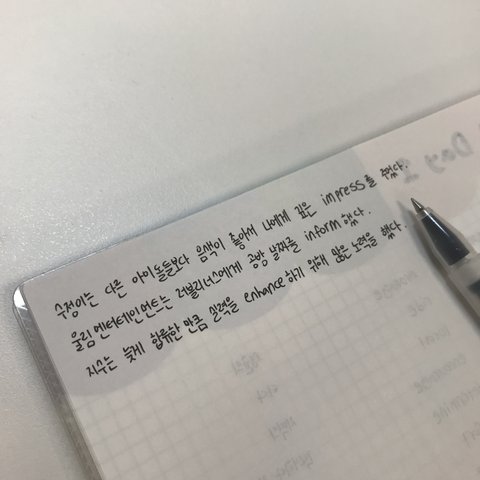 수정이는 다른 아이돌들보다 음색이 좋아서 나에게 깊은 impress를 주었다.
울림엔터테인먼트는 러블리너스에게 공방 날짜를 inform 했다.
지수는 늦게 합류한 만큼 실력을 enhance 하기 위해 많은 노력을 했다.
Day 2